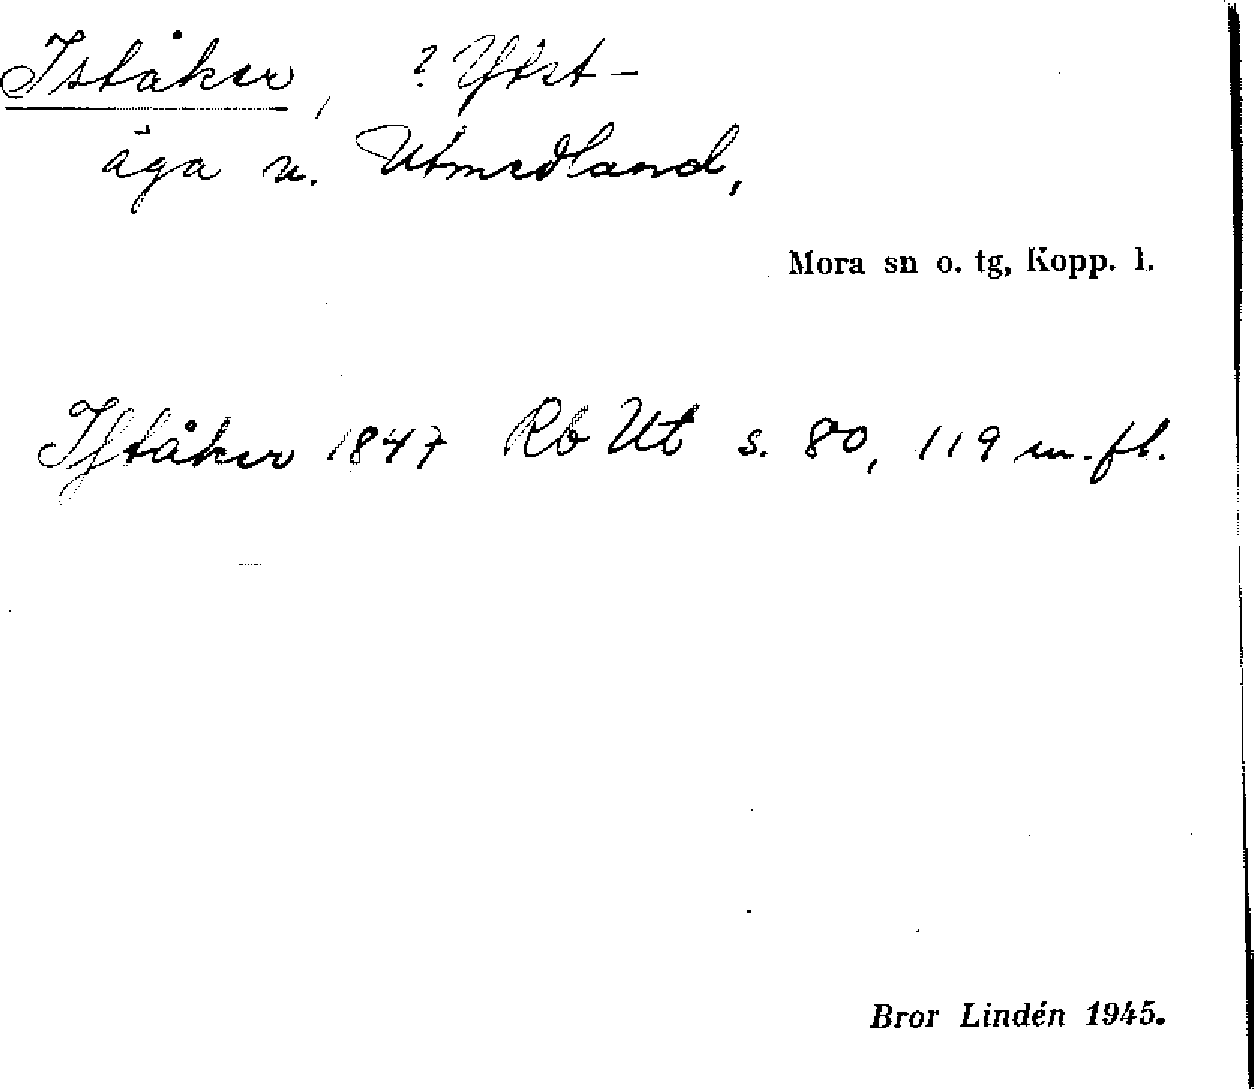 Iståker, ? Ytst-
äga u. Utmedland,
Mora sn o. tg, Kopp. l.
Iſtåker 1847 Rb Ut s. 80, 119 m. fl.
Bror Lindén 1945.